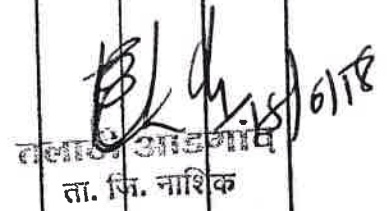 18/6/18
तलाठी आडगांव
ता. जि. नाशिक